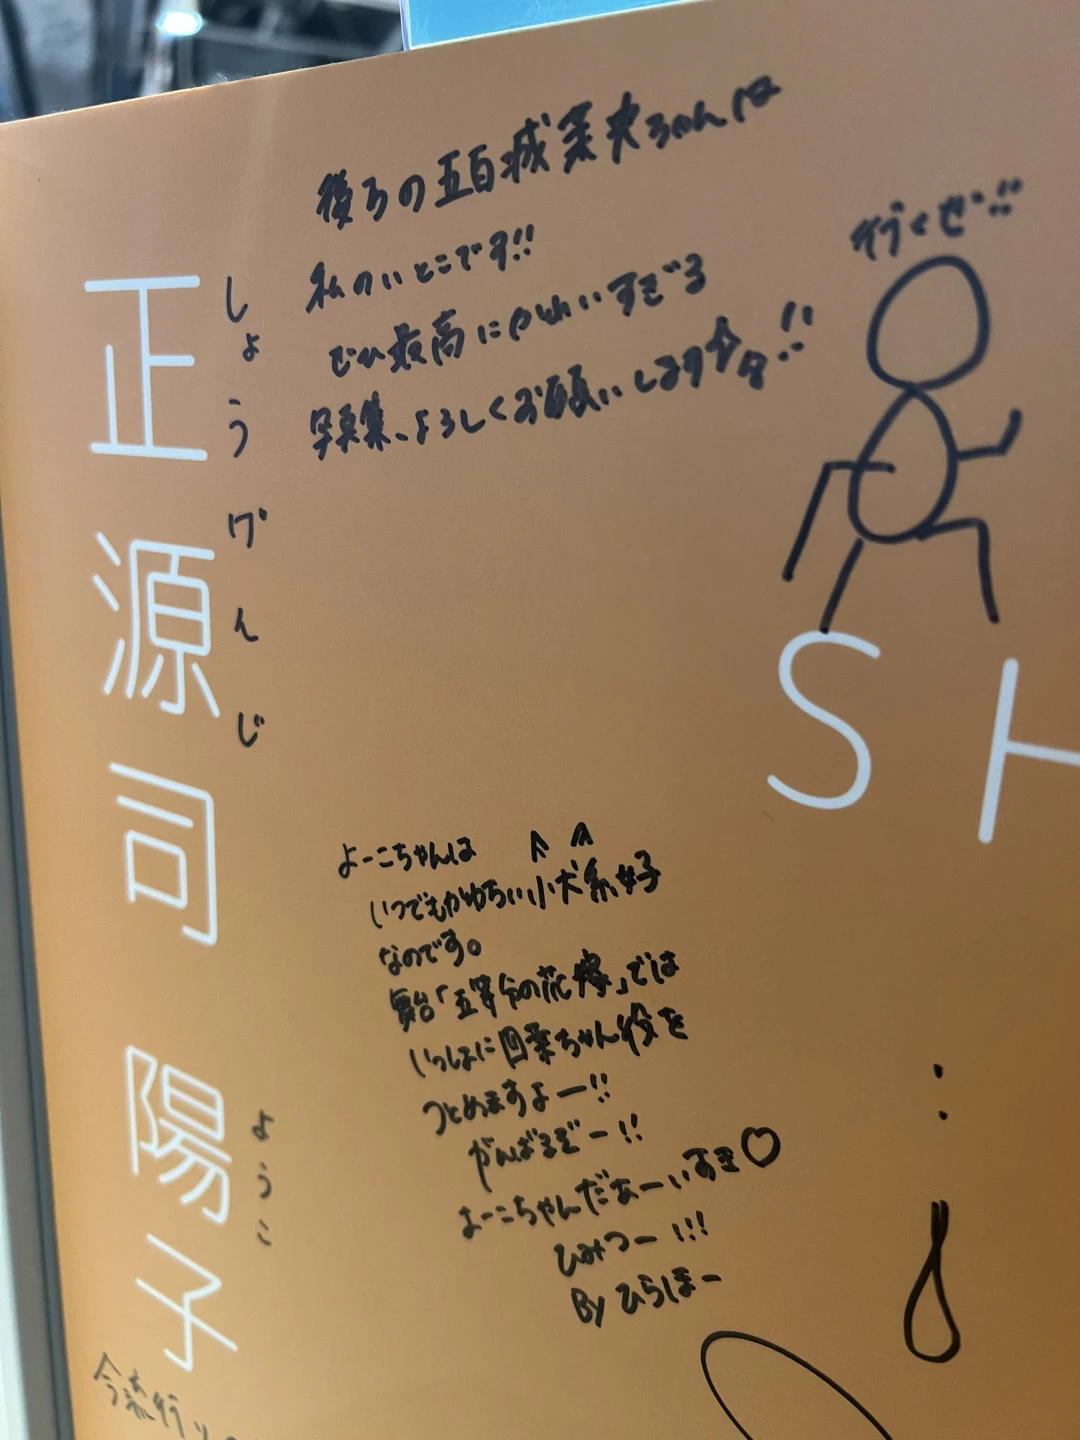 後ろの五百城茉央ちゃんは
私のいとこです!!
でん最高にかわいすぎる
写真集、よろしくお願いします!!
行くぜ!!
正源司 陽子
しょうげんじ
ようこ
SH
よーこちゃんは
いつでもかわちい小犬系女子
なのです。
舞台「五等分の花嫁」では
いっしょに四葉ちゃん役を
つとめますよー!!
がんばるぞー!!
よーこちゃんだぁーいすき♡
ひみつー!!!
By ひらほー
今流行り